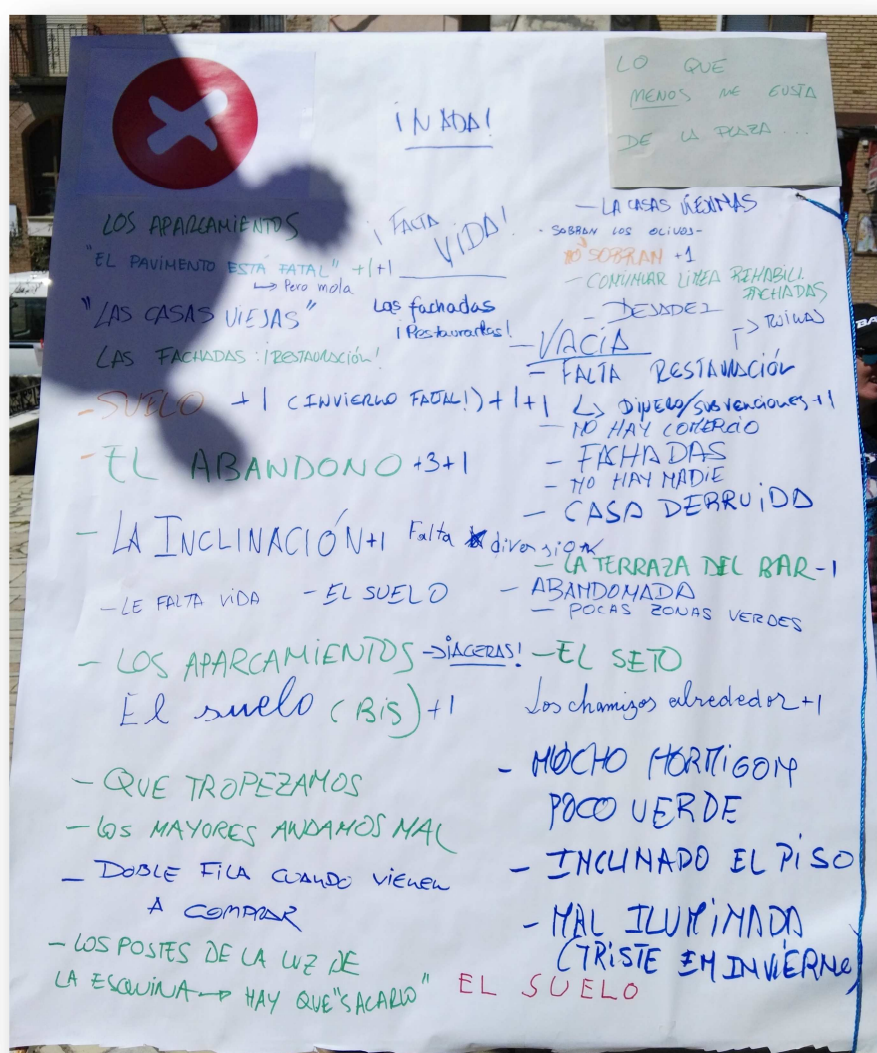 LO QUE
MENOS ME GUSTA
DE LA PLAZA...
¡NADA!
LOS APARCAMIENTOS
"EL PAVIMENTO ESTÁ FATAL" +1+1
↳ Pero mola
"LAS CASAS VIEJAS"
LAS FACHADAS: ¡RESTAURACIÓN!
¡FALTA
VIDA!
Las fachadas
¡Restaurarlas!
- SUELO +1 (INVIERNO FATAL!) +1+1
- EL ABANDONO +3+1
- LA INCLINACIÓN +1
Falta diversión
- LE FALTA VIDA
- EL SUELO
- LOS APARCAMIENTOS → ¡ACERAS!
El suelo (BIS) +1
- QUE TROPEZAMOS
- LOS MAYORES ANDAMOS MAL
- DOBLE FILA CUANDO VIENEN
A COMPRAR
- LOS POSTES DE LA LUZ DE
LA ESQUINA → HAY QUE "SACARLO"
- LA CASAS VIEJAS
- SOBRAN LOS OLIVOS -
NO SOBRAN +1
- CONTINUAR LINEA REHABILI.
FACHADAS
- DEJADEZ
- VACÍA
→ RUINAS
- FALTA RESTAURACIÓN
↳ DINERO/SUBVENCIONES +1
- NO HAY COMERCIO
- FACHADAS
- NO HAY NADIE
- CASA DERRUIDA
- LA TERRAZA DEL BAR -1
- ABANDONADA
- POCAS ZONAS VERDES
- EL SETO
Los chamizos alrededor +1
- MUCHO HORMIGON
POCO VERDE
- INCLINADO EL PISO
- MAL ILUMINADA
(TRISTE EN INVIERNO)
EL SUELO